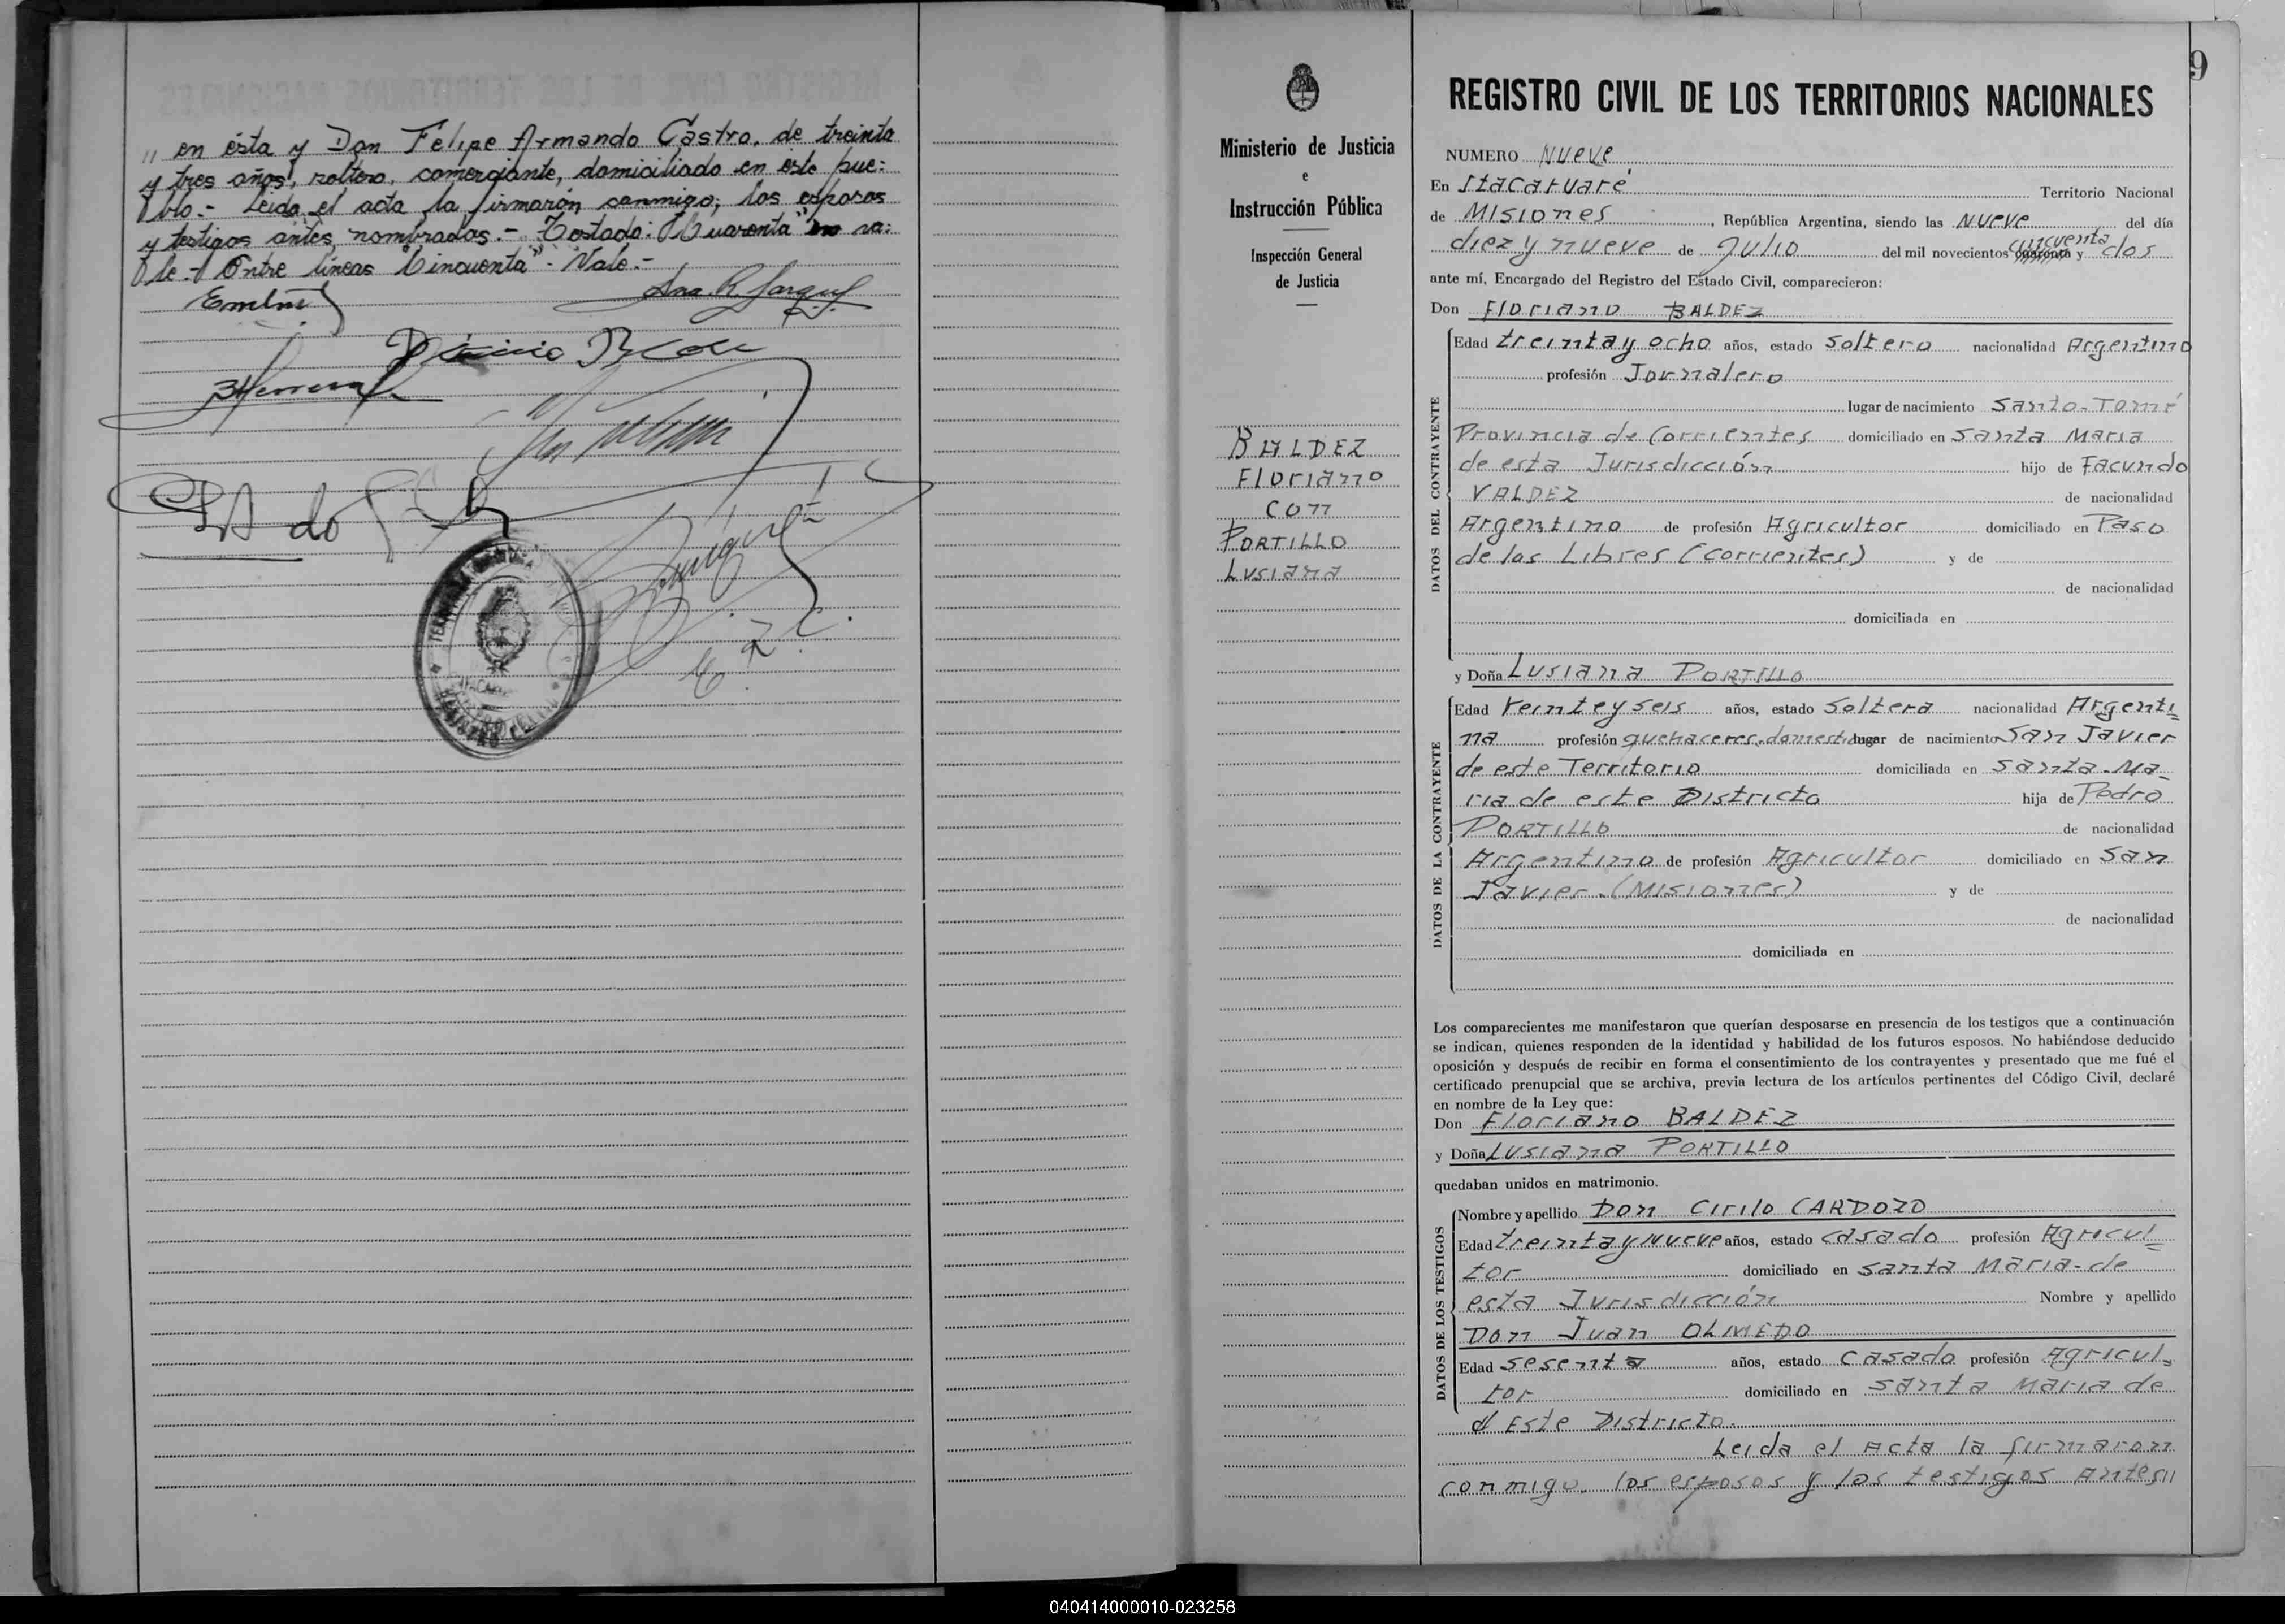 " en ésta y Don Felipe Armando Castro, de treinta
y tres años, soltero, comerciante, domiciliado en este pue:
blo.- Leida el acta la firmarón conmigo, los esposos
y testigos antes nombrados.- Testado: "Cuarenta" no va:
le.- Entre líneas "Cincuenta" - Vale.-
Ana R.
BHerrera
9
Ministerio de Justicia
e
Instrucción Pública
Inspección General
de Justicia
BALDEZ
Floriano
con
PORTILLO
Lusiana
REGISTRO CIVIL DE LOS TERRITORIOS NACIONALES
NUMERO Nueve
En Itacaruaré Territorio Nacional
de Misiones, República Argentina, siendo las Nueve del día
diez y nueve de Julio del mil novecientos cuarenta cincuenta y dos
ante mí, Encargado del Registro del Estado Civil, comparecieron:
Don Floriano BALDEZ
DATOS DEL CONTRAYENTE
Edad treinta y ocho años, estado soltero nacionalidad Argentino
profesión Jornalero
lugar de nacimiento Santo-Tomé
Provincia de Corrientes domiciliado en Santa Maria
de esta Jurisdicción hijo de Facundo
VALDEZ de nacionalidad
Argentino de profesión Agricultor domiciliado en Paso
de los Libres (corrientes) y de
de nacionalidad
domiciliada en
y Doña Lusiana PORTILLO
DATOS DE LA CONTRAYENTE
Edad Veinte y seis años, estado Soltera nacionalidad Argenti=
na profesión quehaceres domest. lugar de nacimiento San Javier
de este Territorio domiciliada en Santa-Ma-
ria de este Districto hija de Pedro
PORTILLO de nacionalidad
Argentino de profesión Agricultor domiciliado en San
Javier (Misiones) y de
de nacionalidad
domiciliada en
Los comparecientes me manifestaron que querían desposarse en presencia de los testigos que a continuación
se indican, quienes responden de la identidad y habilidad de los futuros esposos. No habiéndose deducido
oposición y después de recibir en forma el consentimiento de los contrayentes y presentado que me fué el
certificado prenupcial que se archiva, previa lectura de los artículos pertinentes del Código Civil, declaré
en nombre de la Ley que:
Don Floriano BALDEZ
y Doña Lusiana PORTILLO
quedaban unidos en matrimonio.
DATOS DE LOS TESTIGOS
Nombre y apellido Don Cirilo CARDOZO
Edad treinta y nueve años, estado casado profesión Agricul=
tor domiciliado en Santa Maria-de
esta Jurisdicción Nombre y apellido
Don Juan OLMEDO
Edad sesenta años, estado Casado profesión Agricul=
tor domiciliado en Santa Maria de
Este Districto.
Leida el Acta la firmaron
conmigo los esposos y los testigos Antes"
040414000010-023258